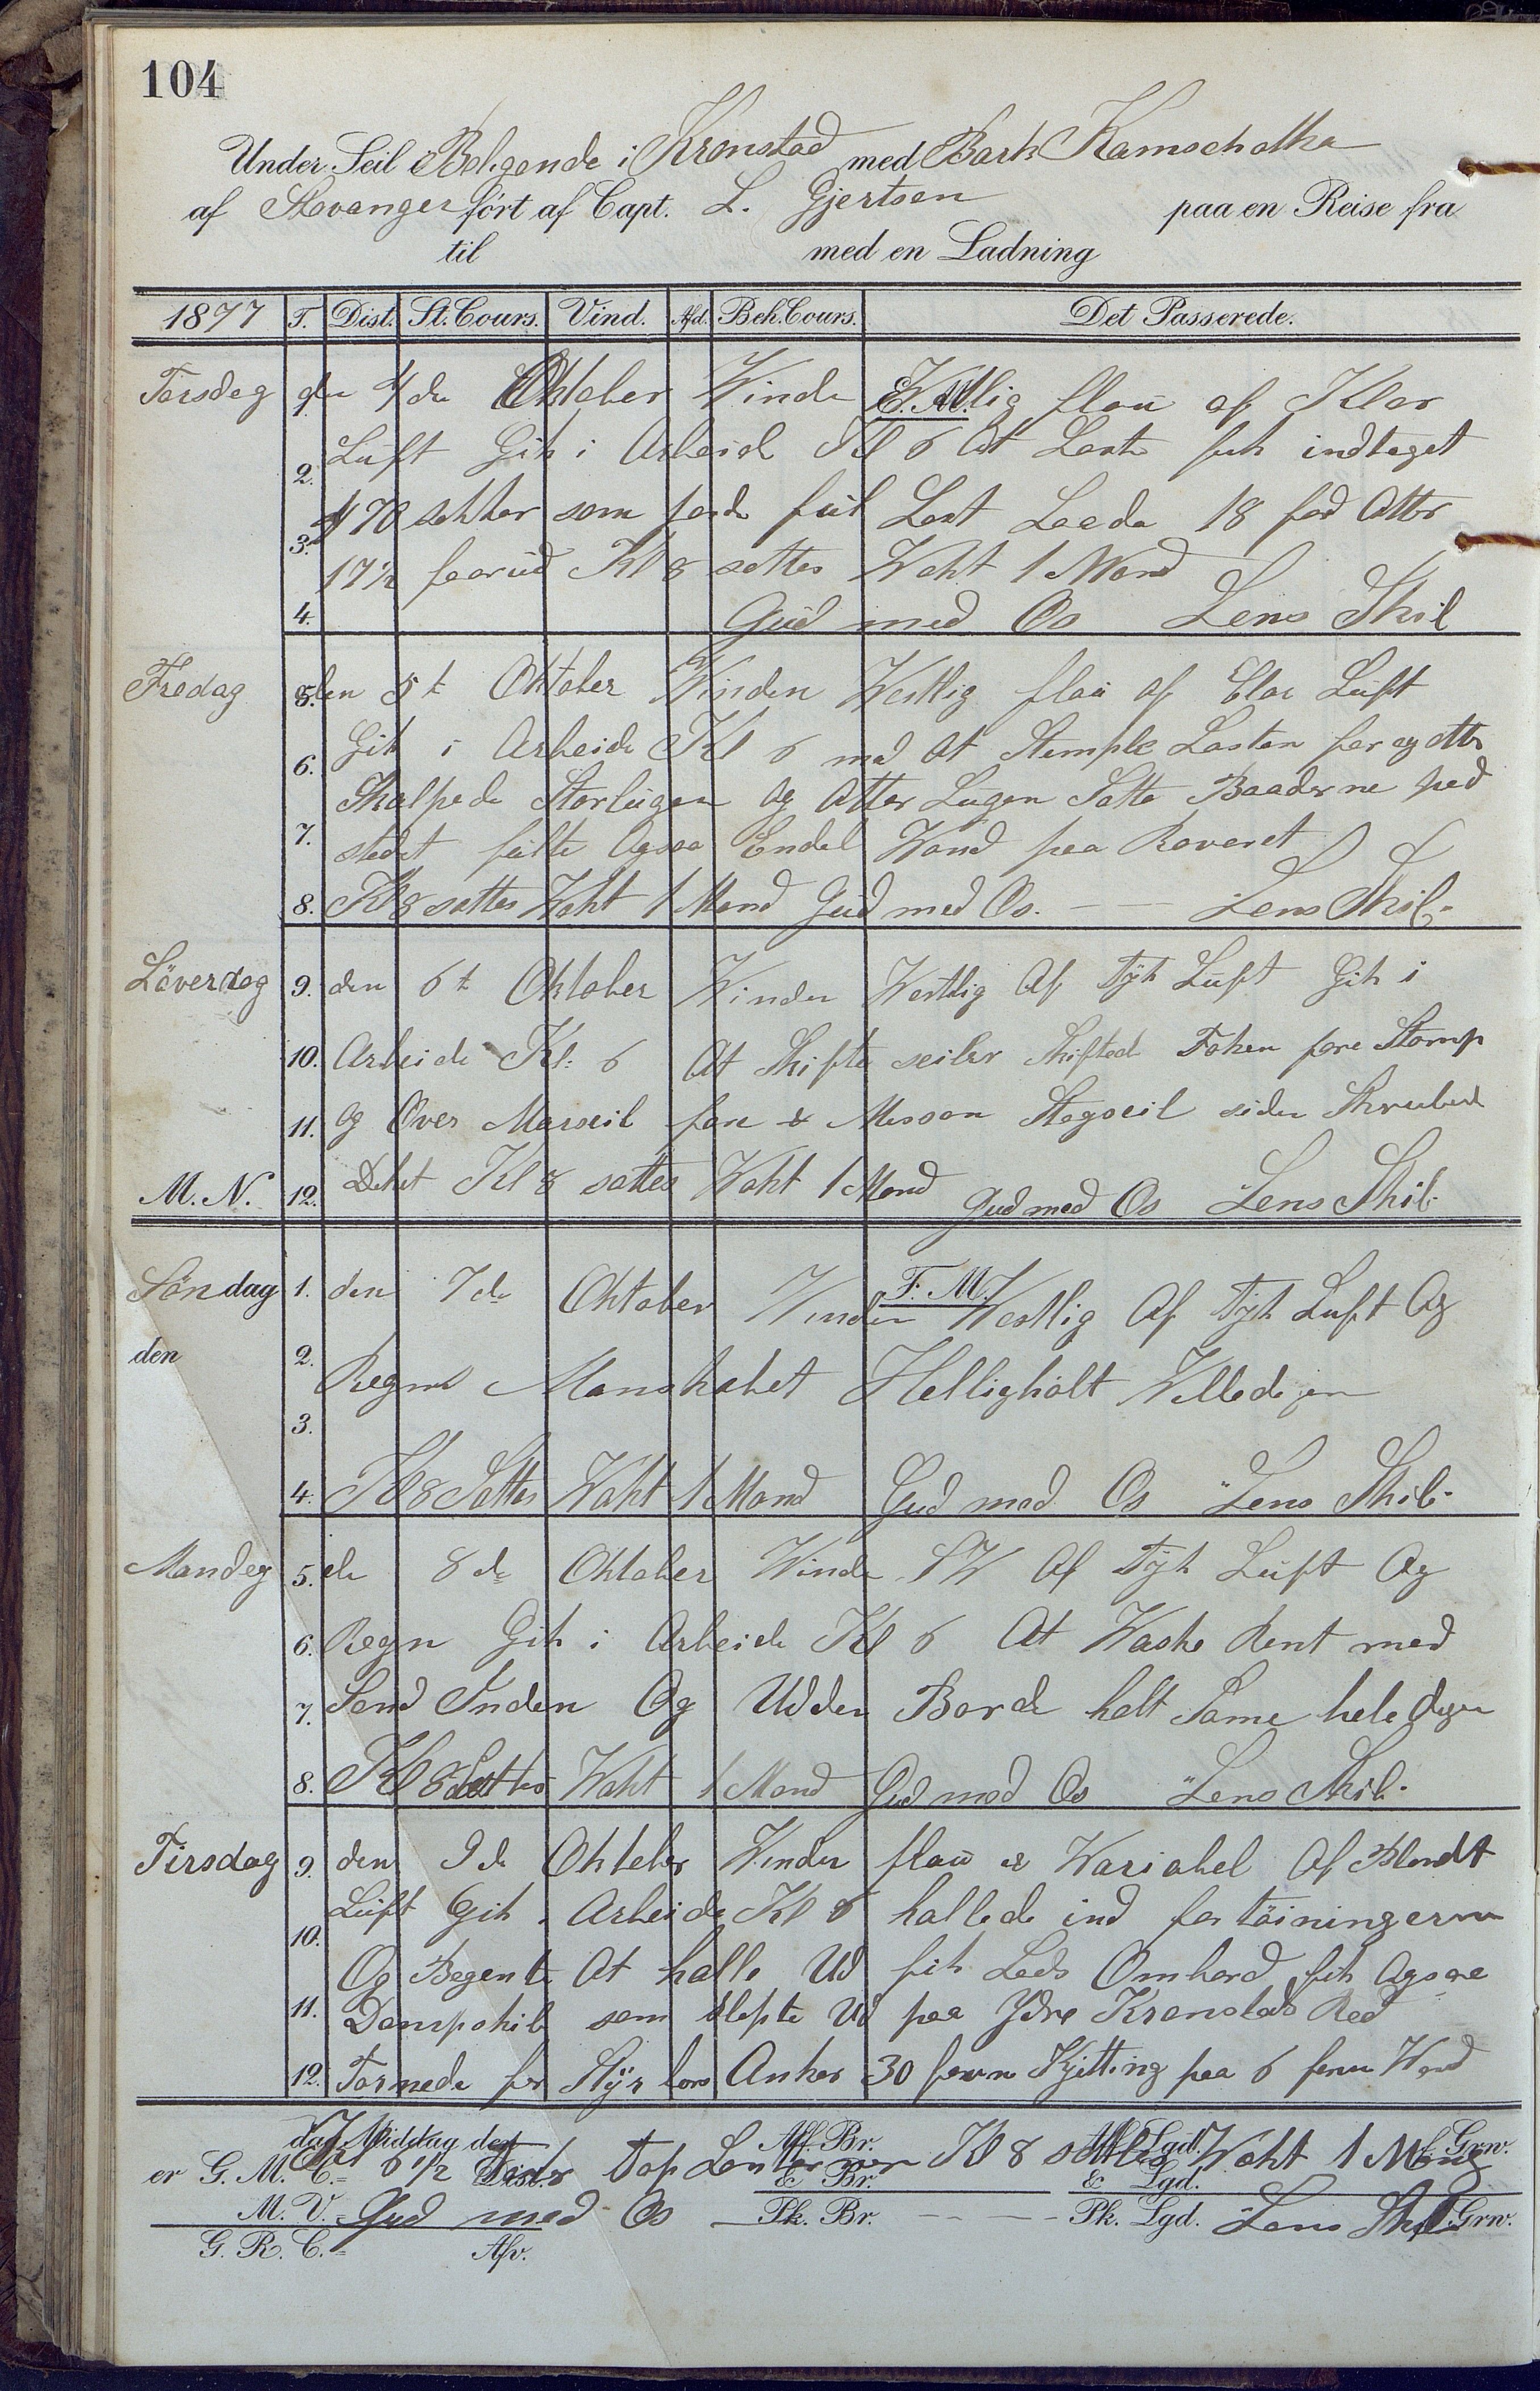 104
Under Seil i Beligende i Kronstad med Bark Kamschatka
af Stavanger ført af Capt. L. Gjertsen paa en Reise fra
til med en Ladning
1877 T. Dist. St. Cours. Vind. Afd. Beh. Cours. Det Passerede.
E. M.
Torsdag den 4de Oktober Winden Westlig flau af Klar
Luft Gik i Arbeid Kl 6 At Laste fik indtaget
470 sekker som jorde full Last Leede 18 fod Atter
17 1/2 foorud Kl 8 sattes Wakt 1 Mand
Gud med Os Lens Skib
Fredag den 5t Oktober Winden Westlig flau af Clar Luft
Gik i Arbeide Kl 6 med At Stemple Lasten for og atter
Skalpede Storlugen og Atter Lugen Satte Baaderne paa
stedet fulte Agsaa Endel Wand paa Roveret
Kl 8 sattes Wakt 1 Mand Gud med Os. Lens Skib
Löverdag den 6t Oktober Winden Westlig Af Tyk Luft Gik i
Arbeide Kl: 6 At Skifte seiler Skifted Foken fore Stomp
og Over Marseil fore & Messan Stagseil siden Skrubed
M. N. Deket Kl 8 sattes Wakt 1 Mand Gud med Os Lens Skib
F. M.
Söndag den 7de Oktober Winden Westlig Af Tyk Luft Og
den Regn Manskabet Helligholt Kl 8 Sattes Wakt 1 Mand Gud med Os Lens Skib
Mandag de 8de Oktober Winde SW Af Tyk Luft Og
Regn Gik i Arbeide Kl 6 At Waske Rent med
Sand Inden Og Udden Borde holt Same hele dagen
Kl 8 Sattes Wakt 1 Mand Gud med Os Lens Skib
Tirsdag den 9de Oktober Winden flau & Wariabel Af Blandt
Luft Gik i Arbeide Kl 6 hallede ind fortöiningerne
Og Begente At halle Ud fik Lods Ombord fik Agsaa
Dampskib som slepte Ud paa Ydre Kronstads Red
Tornede for Styrbors Anker 30 favne Kjetting paa 6 favne Wand
dag Middag den
er G. M. C. = Dist. Aff. Br. Aff. Lgd. Grw.
Kl 6 1/2 Top Lanternen Kl 8 sattes Wakt 1 Mand
& Br. & Lgd.
M. V. = Gud med Os Pk. Br. Pk. Lgd. Lens Skib Grw.
G. R. C. = Afv.